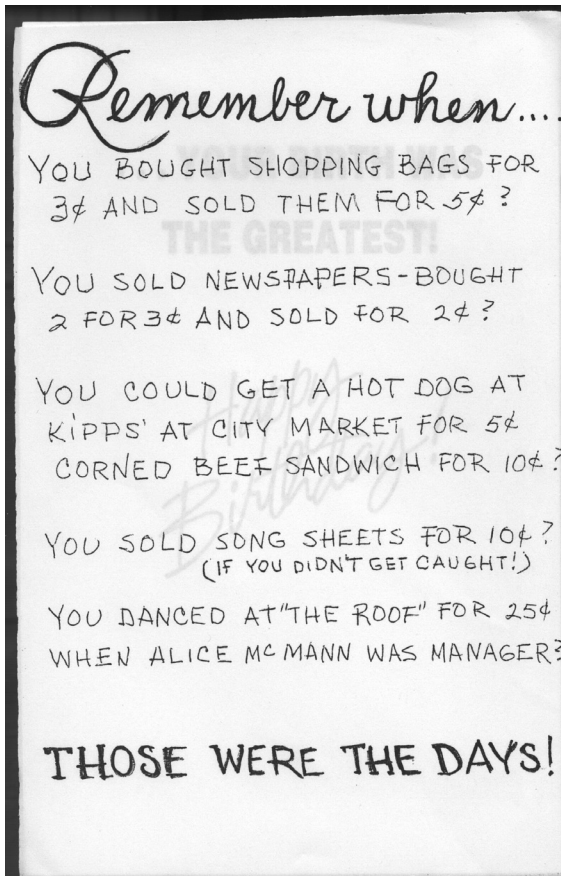 Remember when....
YOU BOUGHT SHOPPING BAGS FOR
3¢ AND SOLD THEM FOR 5¢?
YOU SOLD NEWSPAPERS-BOUGHT
2 FOR 3¢ AND SOLD FOR 2¢?
YOU COULD GET A HOT DOG AT
KIPPS' AT CITY MARKET FOR 5¢
CORNED BEEF SANDWICH FOR 10¢?
YOU SOLD SONG SHEETS FOR 10¢?
(IF YOU DIDN'T GET CAUGHT!)
YOU DANCED AT "THE ROOF" FOR 25¢
WHEN ALICE MCMANN WAS MANAGER?
THOSE WERE THE DAYS!
YOUR BIRTH WAS
THE GREATEST!
Happy
Birthday!